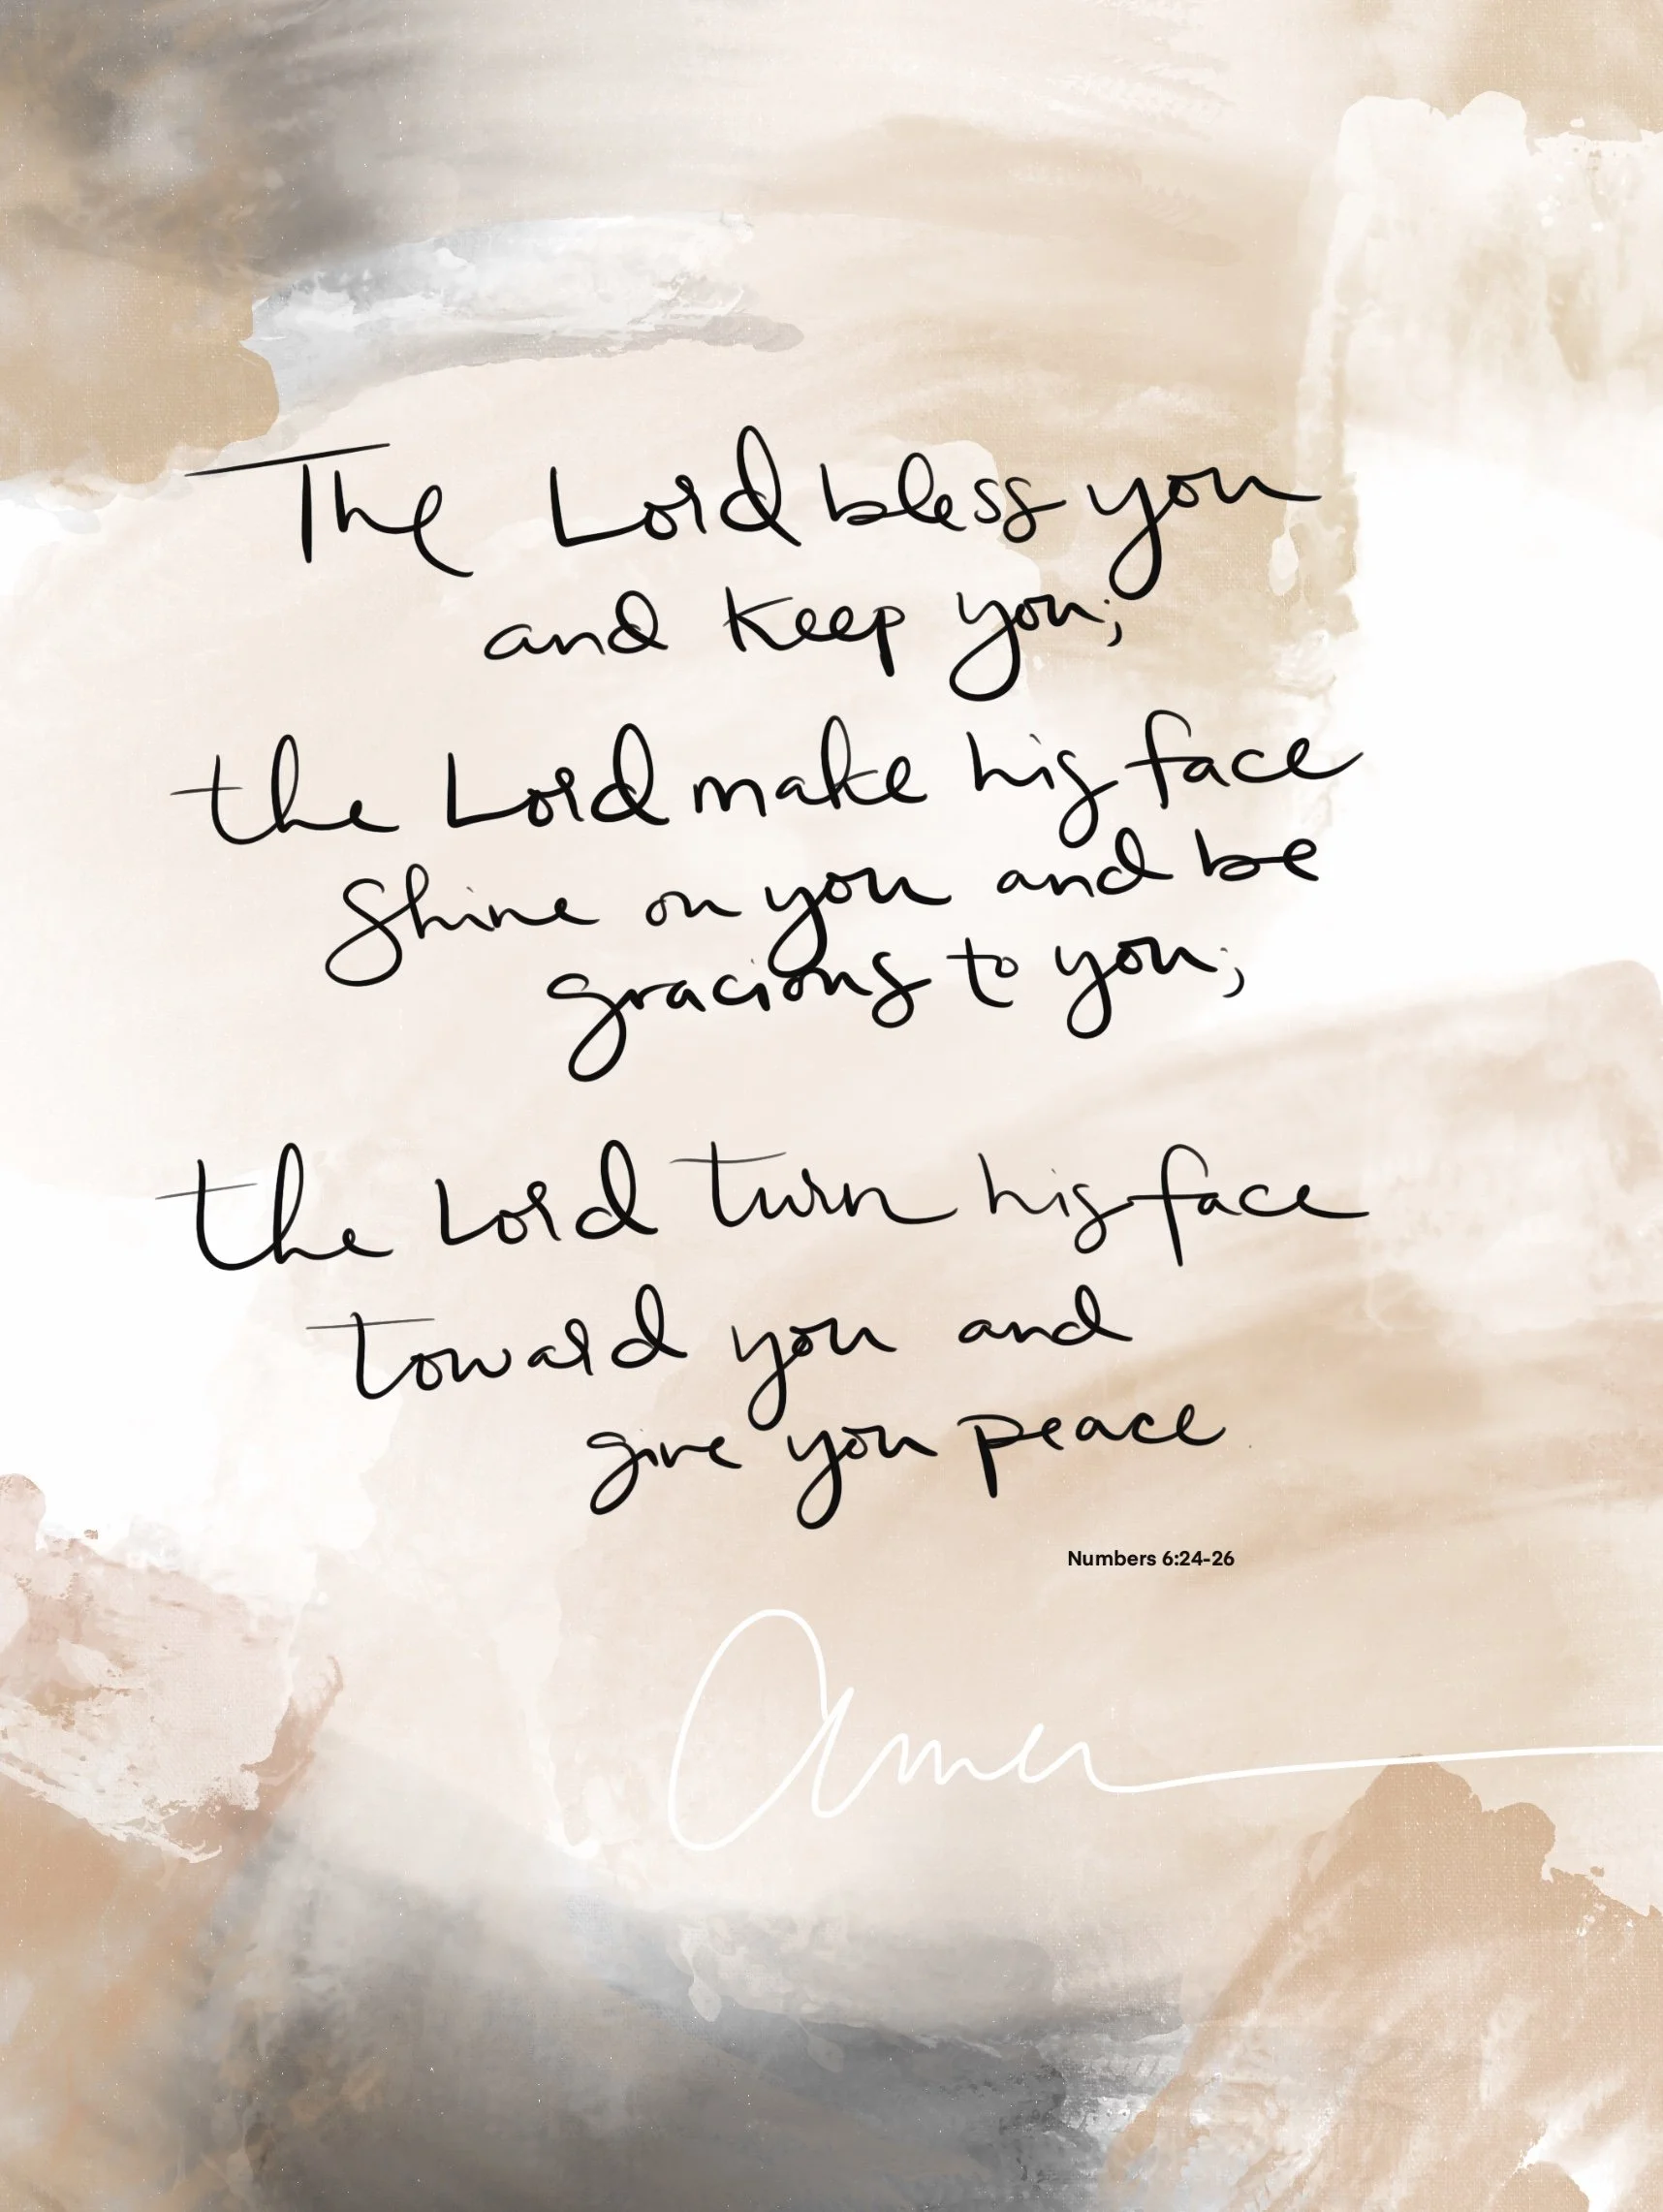 The Lord bless you
and keep you;
the Lord make his face
shine on you and be
gracious to you;
the Lord turn his face
toward you and
give you peace
Numbers 6:24-26
amen